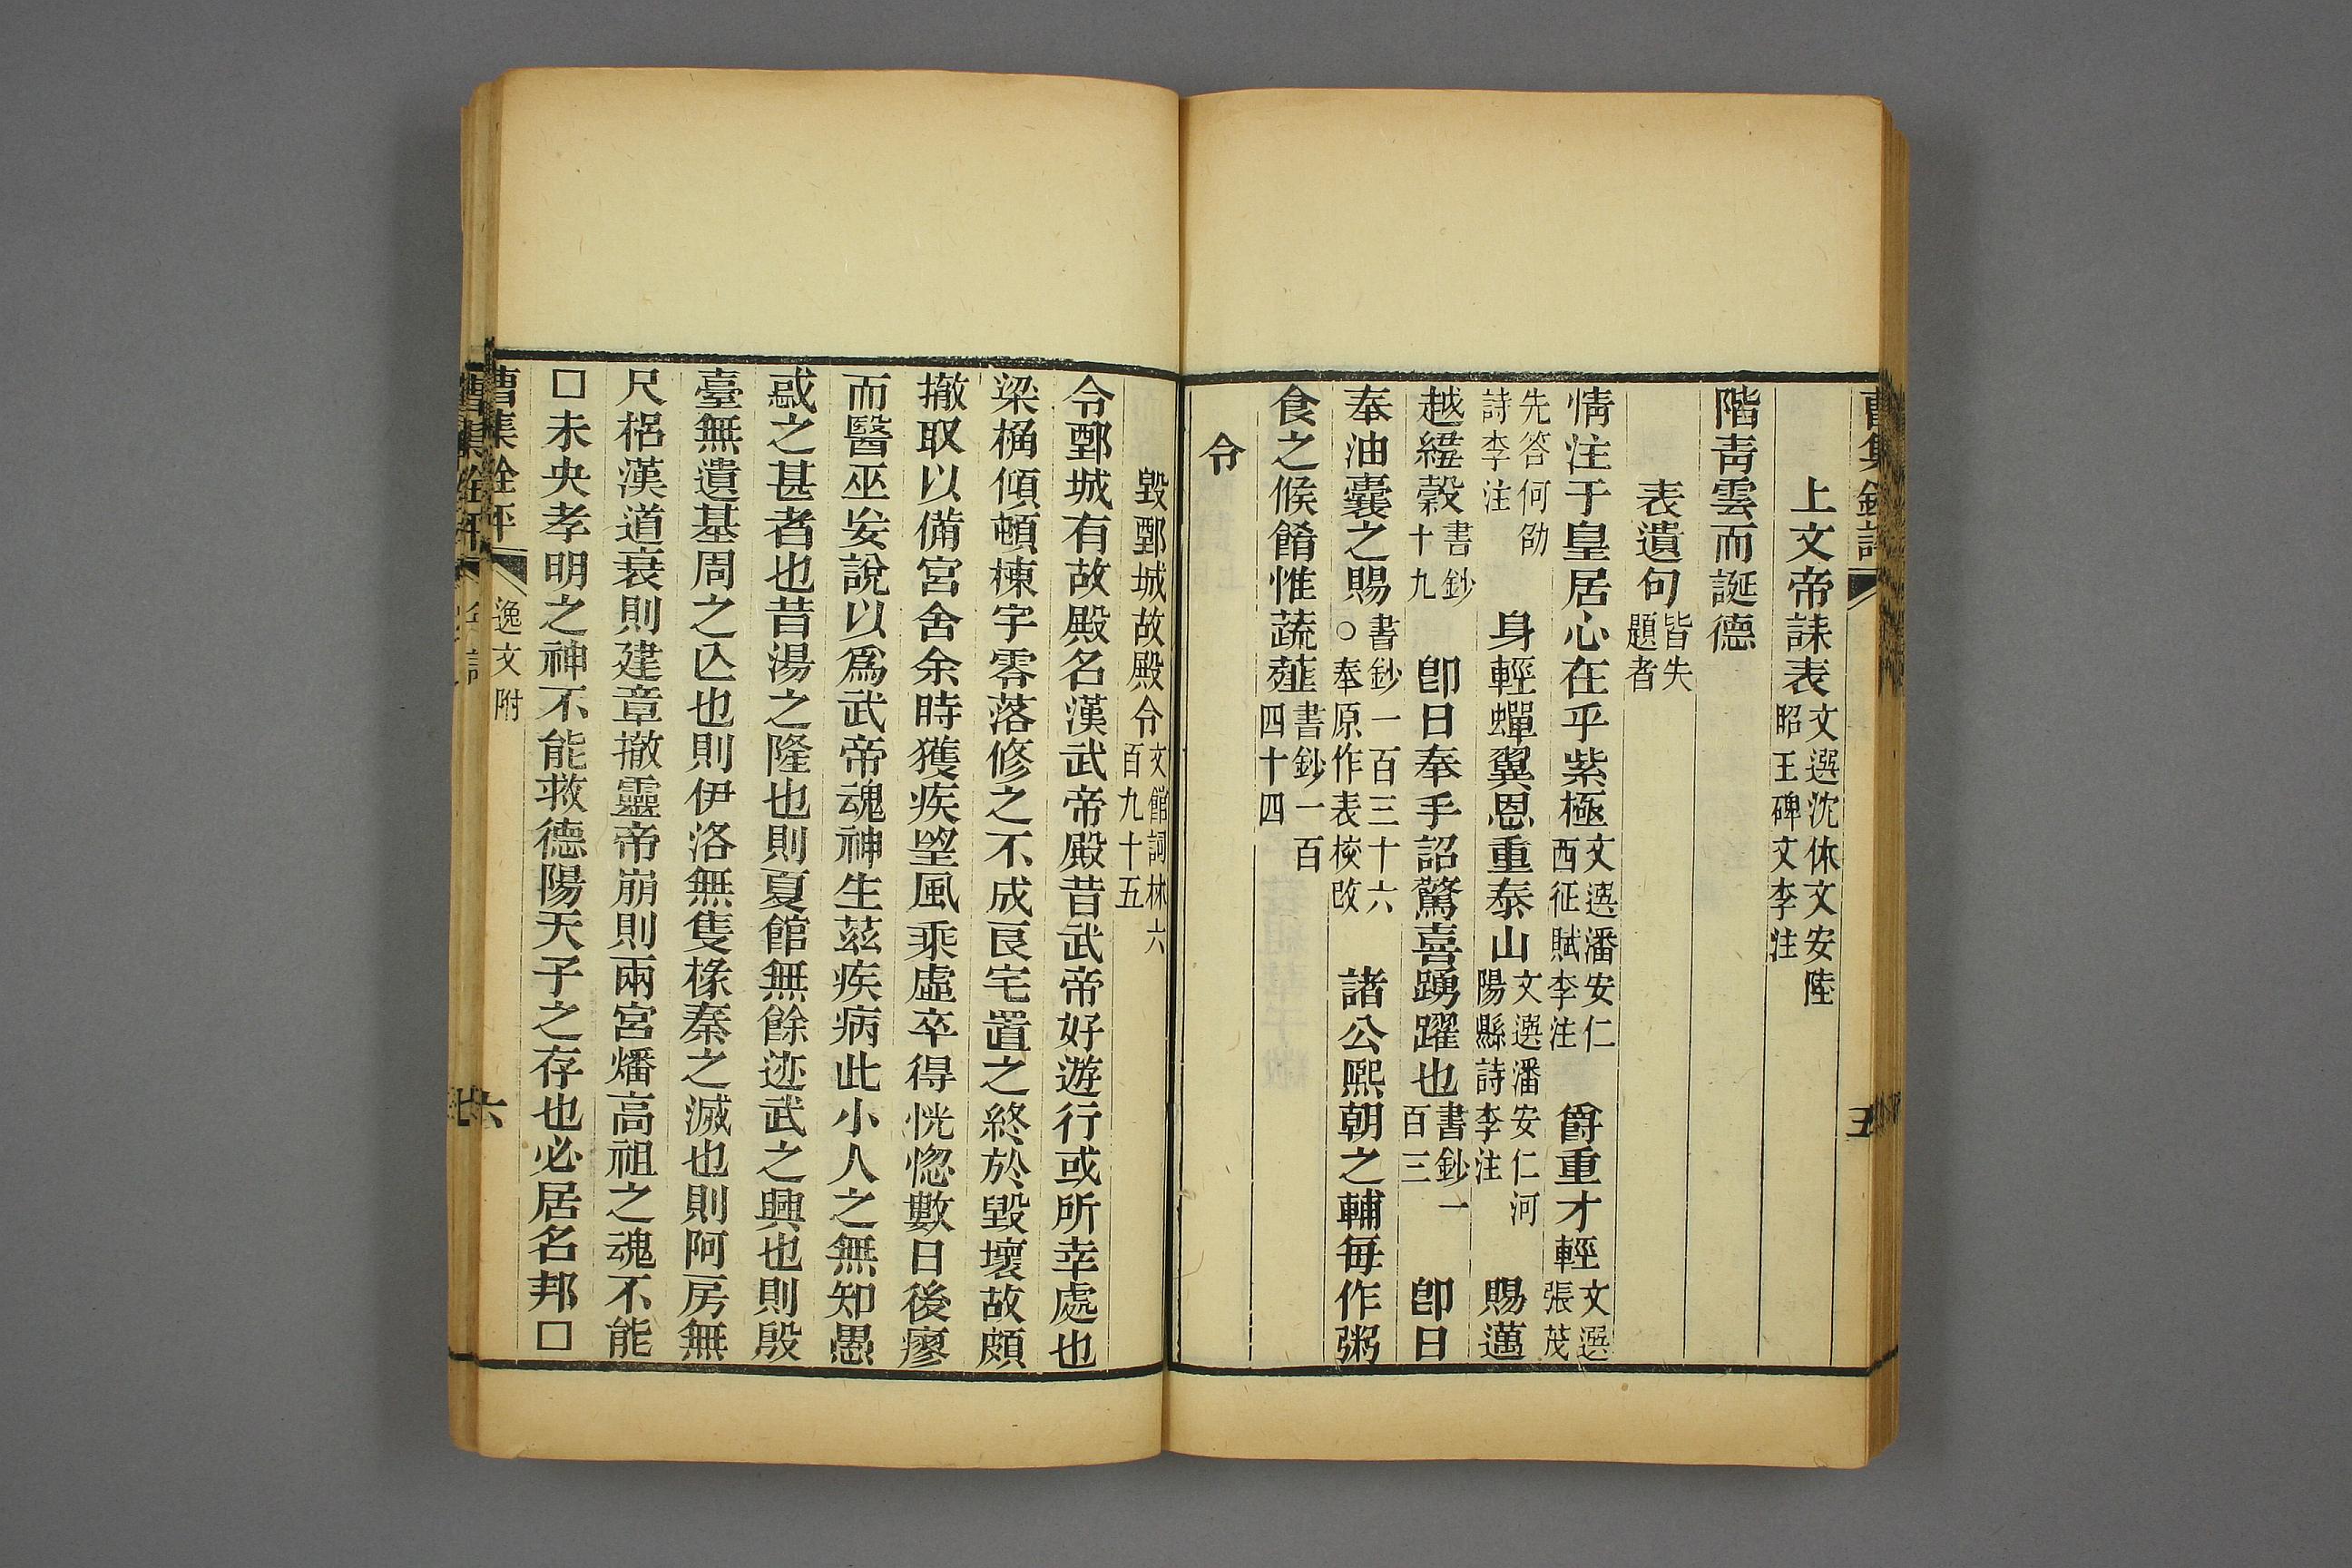 上文帝誄表文選沈休文安陸昭王碑文李注
階青雲而誕德
表遺句皆失題者
情注于皇居心在乎紫極文選潘安仁西征賦李注 爵重才輕文選張茂
先答何劭詩李注 身輕蟬翼恩重泰山文選潘安仁河陽縣詩李注 賜邁
越縰縠書鈔十九 卽日奉手詔驚喜踴躍也書鈔一百三 卽日
奉油囊之賜書鈔一百三十六○奉原作表校改 諸公熙朝之輔每作粥
食之候餚惟蔬薤書鈔一百四十四
令
毀鄄城故殿令文館詞林六百九十五
令鄄城有故殿名漢武帝殿昔武帝好遊行或所幸處也
梁桷傾頓棟宇零落修之不成良宅置之終於毀壞故頗
撤取以備宮舍余時獲疾望風乘虛卒得恍惚數日後瘳
而醫巫妄說以爲武帝魂神生茲疾病此小人之無知愚
惑之甚者也昔湯之隆也則夏館無餘迹武之興也則殷
臺無遺基周之亾也則伊洛無隻椽秦之滅也則阿房無
尺梠漢道衰則建章撤靈帝崩則兩宮燔高祖之魂不能
□未央孝明之神不能救德陽天子之存也必居名邦□
曹集銓評 逸文附 六